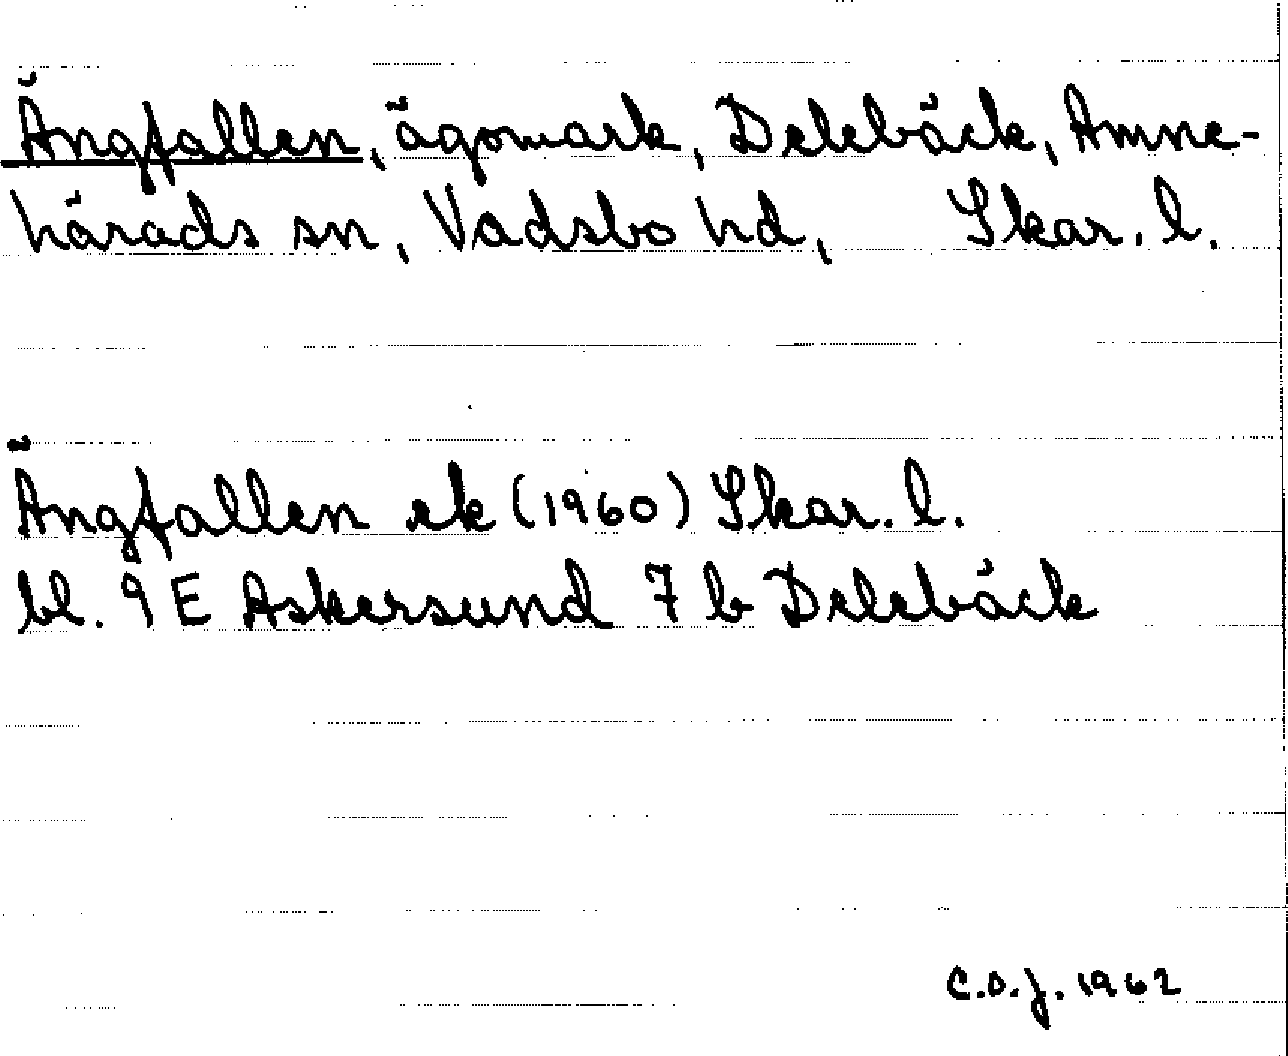 Ängfallen, ägomark, Delebäck, Amne-
härads sn, Vadsbo hd, Skar. l.
Ängfallen ek (1960) Skar. l.
bl. 9 E Askersund 7 b Delebäck
C.O.J. 1962